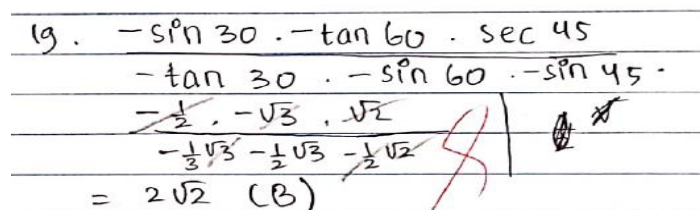 19. -sin 30 . -tan 60 . sec 45
-tan 30 . -sin 60 . -sin 45 .
-1/2 . -√3 . √2
-1/3 √3 -1/2 √3 -1/2 √2
= 2√2 (B)